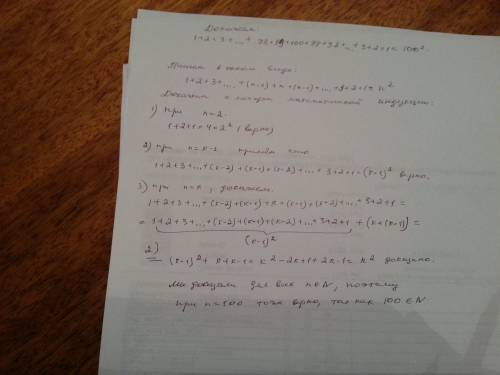 Докажем:
1+2+3+...+ 98+99+100+99+98+...+3+2+1= 100².
Пишем в общем виде:
1+2+3+...+(n-1)+n+(n-1)+...+3+2+1= n²
Докажем методом математической индукции:
1) При n=2.
1+2+1=4=2² (верно)
2) при n=k-1 примем что
1+2+3+...+(k-2)+(k-1)+(k-2)+...+3+2+1=(k-1)² верно.
3) при n=k, докажем.
1+2+3+...+(k-2)+(k-1)+k+(k-1)+(k-2)+...+3+2+1=
= 1+2+3+...+(k-2)+(k-1)+(k-2)+...+3+2+1 + (k+(k-1))=
(k-1)²
2)
= (k-1)²+k+k-1=k²-2k+1+2k-1=k² доказано.
Мы доказали для всех n∈N, поэтому
при n=100 тоже верно, так как 100∈N